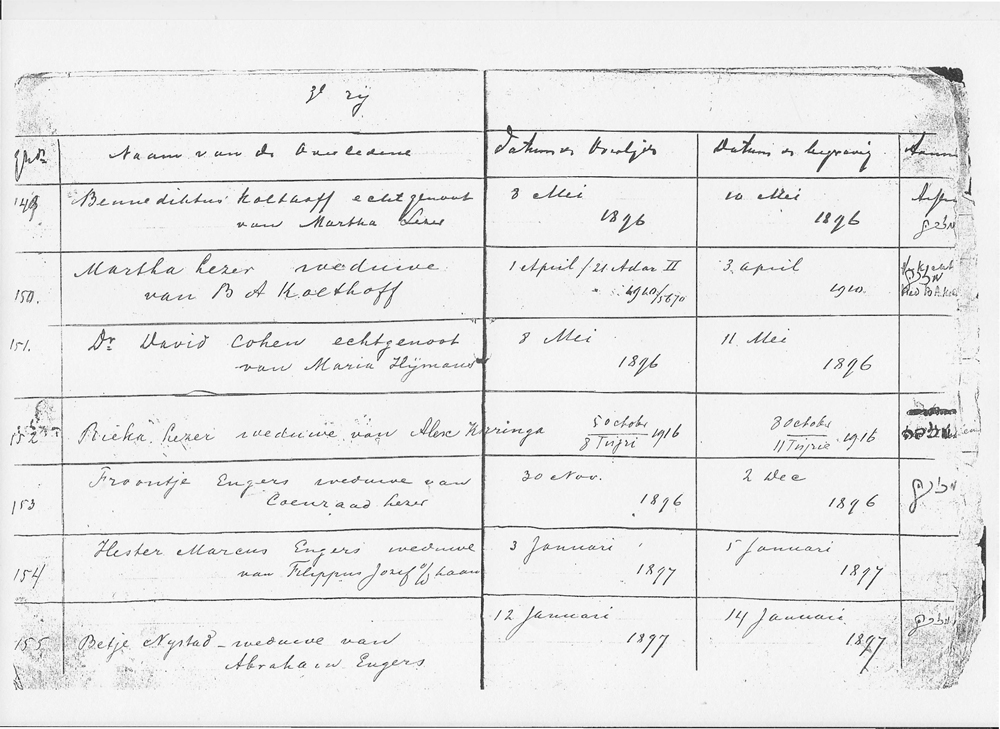 3e rij
Naam van de Overledene Datum v Overlijd Datum v begraving
149 Bennediktus Kolthoff echtgenoot 8 Mei 10 Mei
van Martha Lezer 1896 1896
150. Martha Lezer weduwe 1 April / 21 Adar II 3 April
van B A Kolthoff 1910/5670 1910
151. Dr David Cohen echtgenoot 8 Mei 11 Mei
van Maria Hijmans 1896 1896
152 Rieka Lezer weduwe van Alex Kzn 5 octobr 8 octobr
8 Tisjri 1916 11 Tisjrie 1916
153 Froontje Engers weduwe van 30 Nov. 2 Dec
Coenraad Lezer 1896 1896
154 Hester Marcus Engers weduwe 3 Januari 5 Januari
van Filippus Jozef d/d Laan 1897 1897
155 Betje Nystad - weduwe van 12 Januari 14 Januari
Abraham Engers 1897 1897